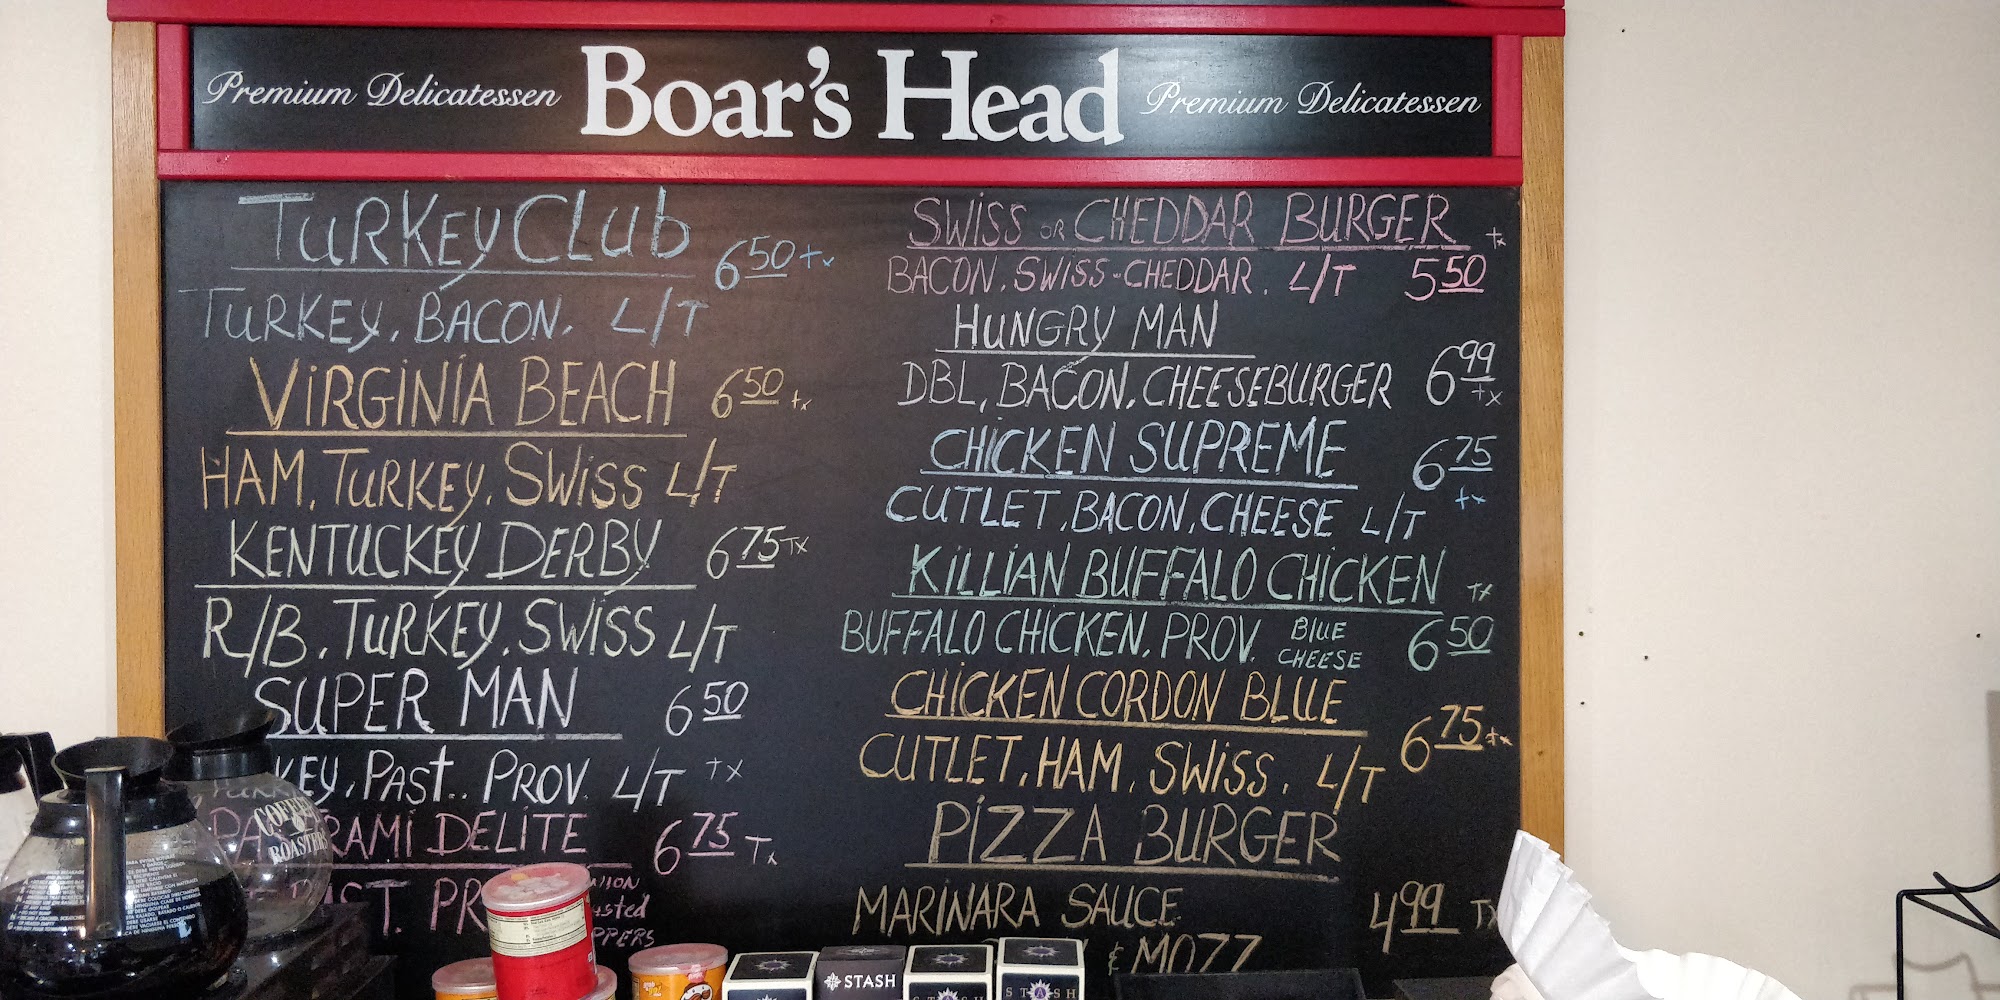 Premium Delicatessen Boar's Head Premium Delicatessen
TURKEY CLUB 6 50 + tx
TURKEY, BACON, L/T
VIRGINIA BEACH 6 50 + tx
HAM, TURKEY, SWISS L/T
KENTUCKEY DERBY 6 75 TX
R/B, TURKEY, SWISS L/T
SUPER MAN 6 50
KEY, PAST.. PROV. L/T TX
PA RAMI DELITE 6 75 Tx
PAST. PR
SWISS OR CHEDDAR BURGER + tx
BACON, SWISS-CHEDDAR, L/T 5 50
HUNGRY MAN
DBL, BACON, CHEESEBURGER 6 99 + tx
CHICKEN SUPREME 6 75
CUTLET, BACON, CHEESE L/T + tx
KILLIAN BUFFALO CHICKEN TX
BUFFALO CHICKEN, PROV. BLUE CHEESE 6 50
CHICKEN CORDON BLUE
CUTLET, HAM, SWISS, L/T 6 75 + tx
PIZZA BURGER
MARINARA SAUCE 4 99 TX
& MOZZ
COFFEE
ROASTERS
STASH
STASH
STASH